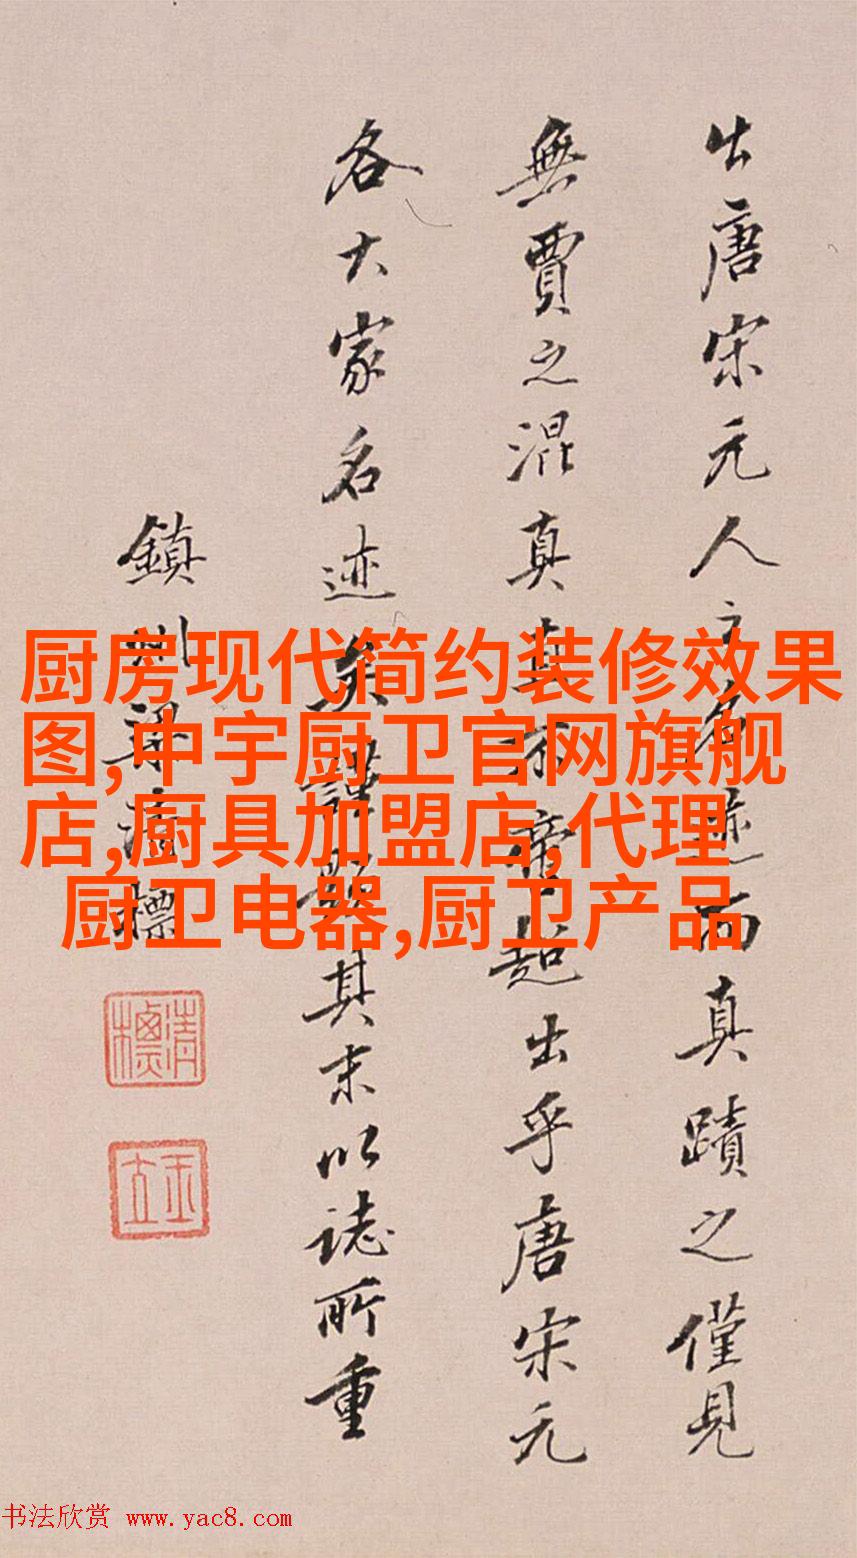 出唐宋元人之名迹而真蹟之僅見
無賈之混真真不啻起出乎唐宋元
各大家名迹矣謹題其末以誌所重
鎮州梁清標
清標
玉立
厨房现代简约装修效果
图,中宇厨卫官网旗舰
店,厨具加盟店,代理
厨卫电器,厨卫产品
书法欣赏 www.yac8.com